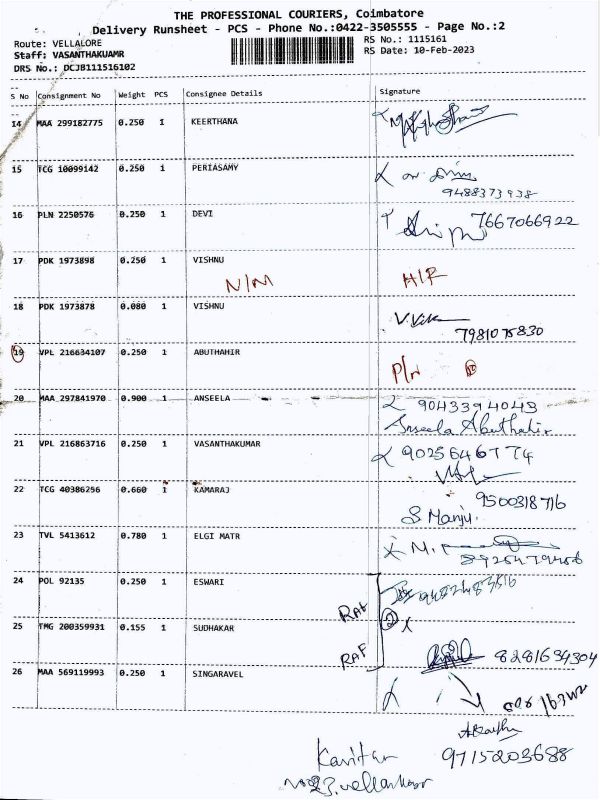 THE PROFESSIONAL COURIERS, Coimbatore
Delivery Runsheet - PCS - Phone No.:0422-3505555 - Page No.:2
Route: VELLALORE RS No.: 1115161
Staff: VASANTHAKUAMR RS Date: 10-Feb-2023
DRS No.: DCJB111516102
S No Consignment No Weight PCS Consignee Details Signature
14 MAA 299182775 0.250 1 KEERTHANA
15 TCG 10099142 0.250 1 PERIASAMY
9488373938
16 PLN 2250576 0.250 1 DEVI 7667066922
17 PDK 1973898 0.250 1 VISHNU
N/M
18 PDK 1973878 0.080 1 VISHNU
7981075830
19 VPL 216634107 0.250 1 ABUTHAHIR
20 MAA 297841970 0.900 1 ANSEELA 9043394043
Anseela Abuthahir
21 VPL 216863716 0.250 1 VASANTHAKUMAR 9025646774
22 TCG 40386256 0.660 1 KAMARAJ 9500318716
S Manju.
23 TVL 5413612 0.780 1 ELGI MATR
24 POL 92135 0.250 1 ESWARI
25 TMG 200359931 0.155 1 SUDHAKAR
8281634304
26 MAA 569119993 0.250 1 SINGARAVEL
9715203688